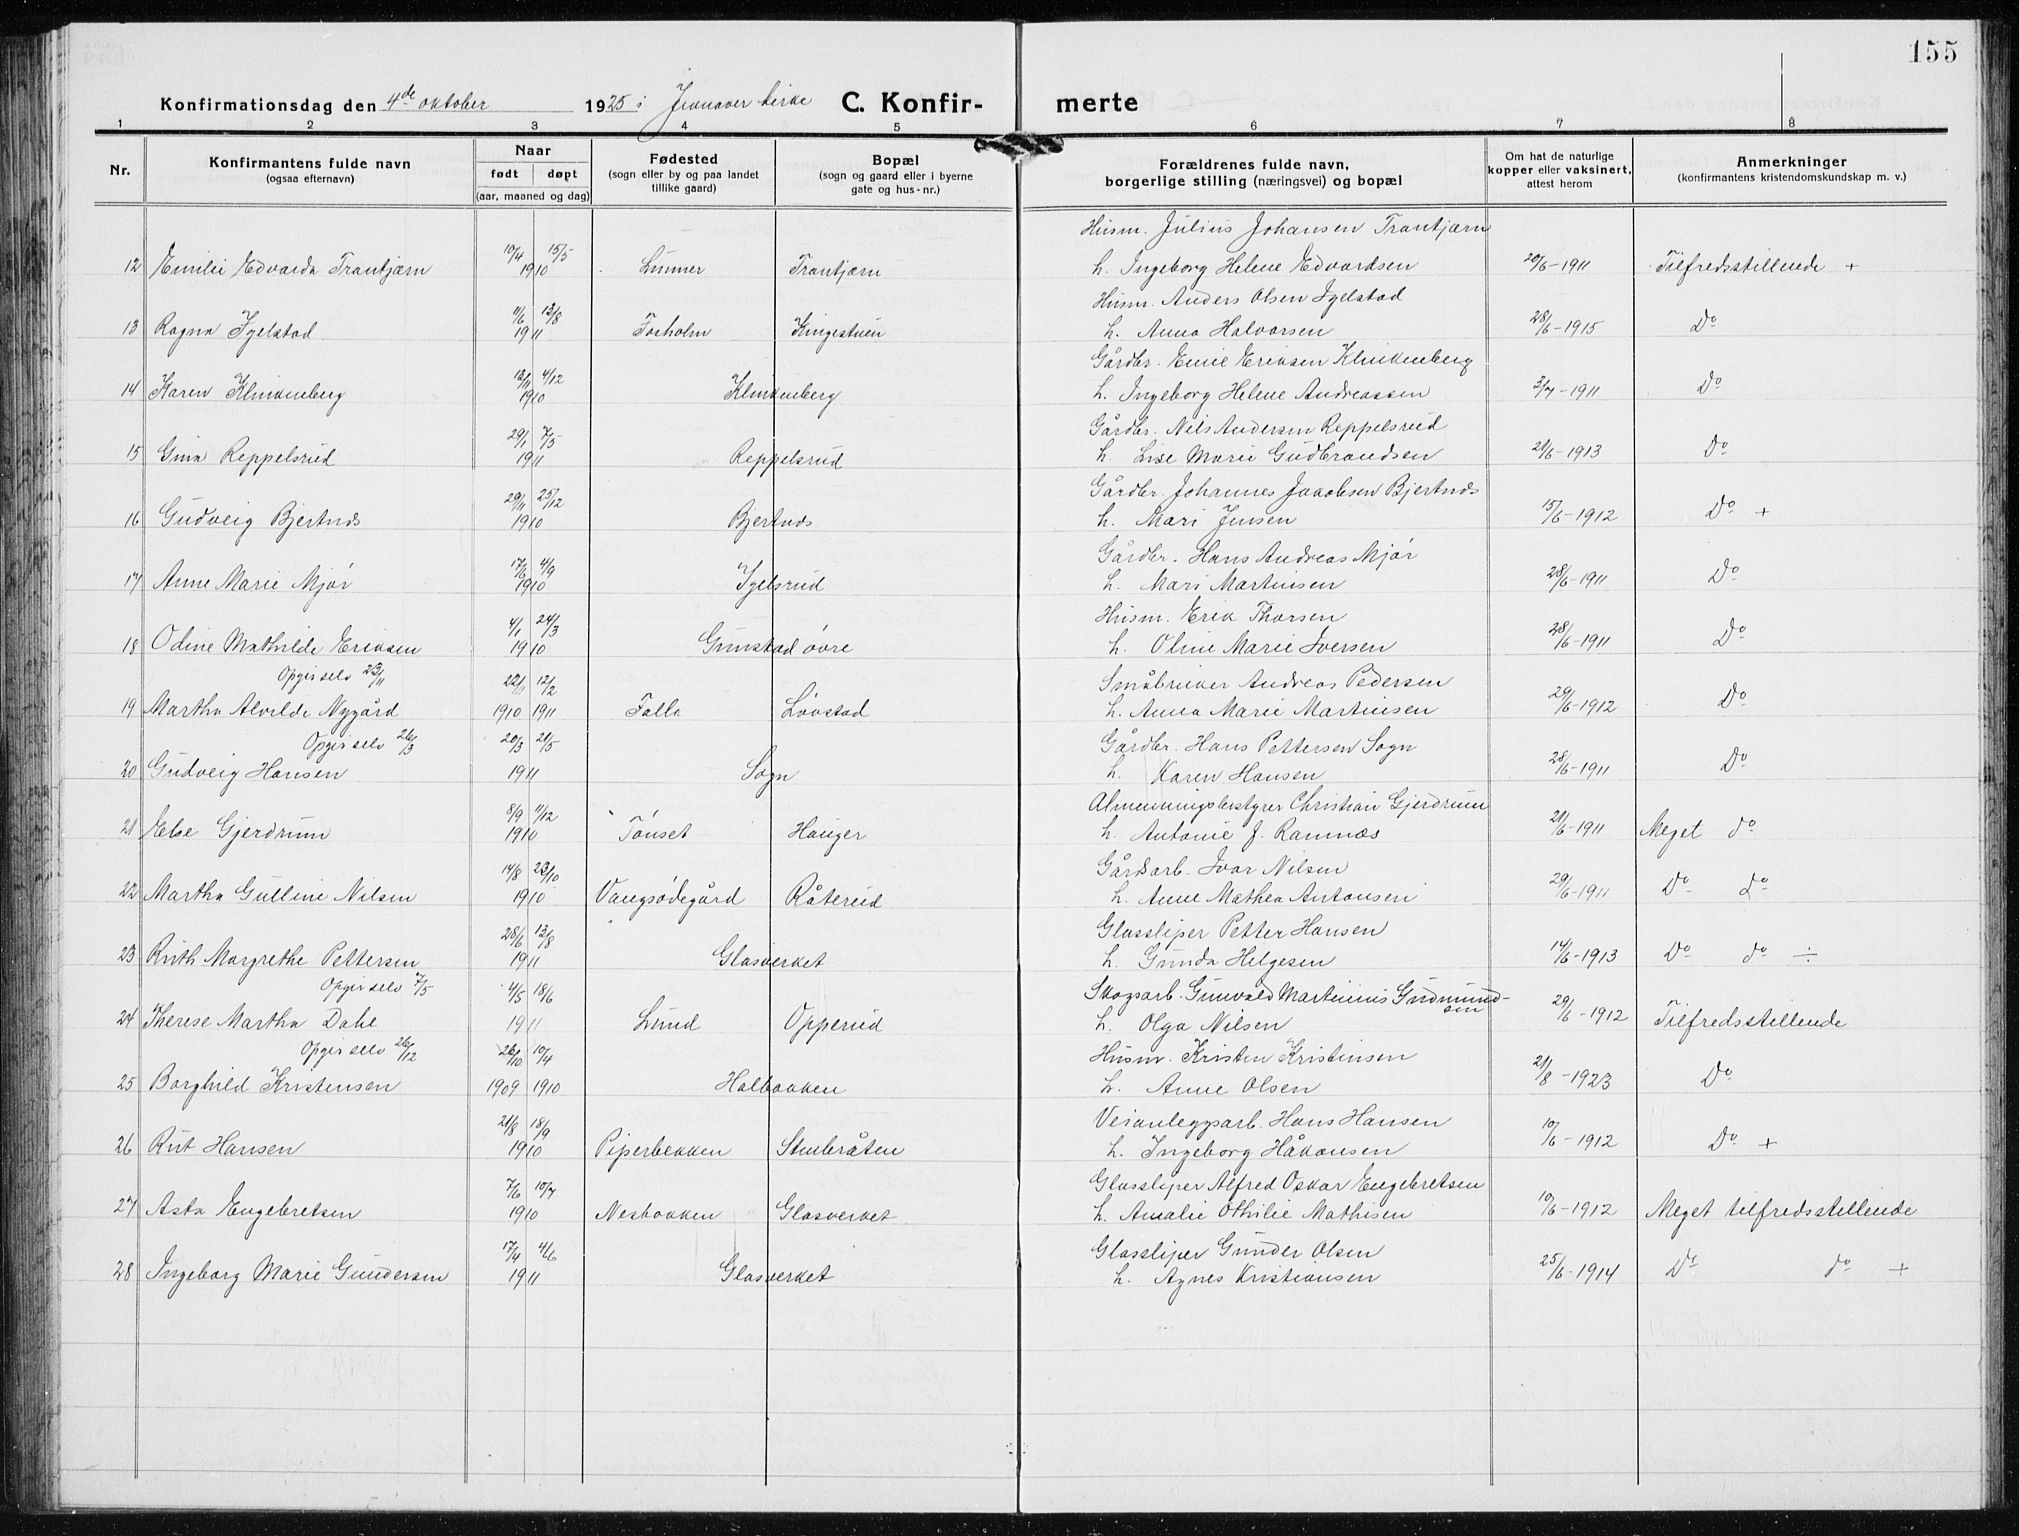 155
Konfirmationsdag den 4de oktober 1925 i Jevnaker kirke C. Konfirmerte
1 2 3 4 5 6 7 8
Nr. Konfirmantens fulde navn (ogsaa efternavn) Naar født døpt (aar, maaned og dag) Fødested (sogn eller by og paa landet tillike gaard) Bopæl (sogn og gaard eller i byerne gate og hus-nr.) Forældrenes fulde navn, borgerlige stilling (næringsvei) og bopæl Om hat de naturlige kopper eller vaksinert, attest herom Anmerkninger (konfirmantens kristendomskundskap m. v.)
Husm. Julius Johansen Trantjærn
12 Emilie Edvarda Trantjærn 10/4 15/5 1910 Lunner Trantjærn h. Ingeborg Helene Edvardsen 20/6-1911 Tilfredsstillende +
Husm. Anders Olsen Igelstad
13 Ragna Igelstad 11/6 13/8 1911 Fosholm Kingestuen h. Anna Halvorsen 28/6-1915 Do
Gårdbr. Emil Eriksen Klinkenberg
14 Karen Klinkenberg 12/11 4/12 1910 Klinkenberg h. Ingeborg Helene Andreassen 3/7-1911 Do
Gårdbr. Nils Andersen Reppelsrud
15 Gina Reppelsrud 29/1 7/5 1911 Reppelsrud h. Lise Marie Gudbrandsen 21/6-1913 Do
Gårdbr. Johannes Jacobsen Bjertnes
16 Gudveig Bjertnes 29/11 25/12 1910 Bjertnes h. Mari Jensen 15/6-1912 Do +
Gårdbr. Hans Andreas Mjør
17 Anne Marie Mjør 17/6 4/9 1910 Igelsrud h. Mari Martinsen 28/6-1911 Do
Husm. Erik Thorsen
18 Odine Mathilde Eriksen 4/1 24/3 1910 Grinstad øvre h. Oline Marie Iversen 28/6-1911 Do
Opgir selv 23/11 22/11 12/2 Småbruker Andreas Pedersen
19 Martha Alvilde Nygård 1910 1911 Falla Løvstad h. Anna Marie Martinsen 29/6-1912 Do
Opgir selv 26/3 20/3 21/5 Gårdbr. Hans Pettersen Sogn
20 Gudveig Hansen 1911 Sogn h. Karen Hansen 28/6-1911 Do
Almenningsbestyrer Christian Gjerdrum
21 Else Gjerdrum 8/9 11/12 1910 Tønset Hauger h. Antonie J. Ramnæs 21/6-1911 Meget do
Gårdsarb. Ivar Nilsen
22 Martha Gulline Nilsen 14/8 23/10 1910 Vangsødegård Råterud h. Anne Mathea Antonsen 29/6-1911 Do do
Glassliper Petter Hansen
23 Ruth Margrethe Pettersen 28/6 13/8 1911 Glasverket h. Gunda Helgesen 14/6-1913 Do do ÷
Opgir selv 7/5 4/5 18/6 Skogsarb. Gunvald Martinius Gudmundsen
24 Therese Martha Dahl 1911 Lund Opperud h. Olga Nilsen 29/6-1912 Tilfredsstillende
Opgir selv 26/12 26/10 10/4 Husm. Kristen Kristinsen
25 Borghild Kristensen 1909 1910 Halbakken h. Anne Olsen 21/8-1923 Do
Veianlegsarb. Hans Hansen
26 Rut Hansen 21/8 18/9 1910 Piperbekken Stubråten h. Ingeborg Håkonsen 10/6-1912 Do +
Glassliper Alfred Oskar Engebretsen
27 Asta Engebretsen 7/6 10/7 1910 Nesbakken Glasverket h. Amalie Othilie Mathisen 10/6-1912 Meget tilfredsstillende
Glassliper Gunder Olsen
28 Ingeborg Marie Gundersen 17/4 4/6 1911 Glasverket h. Agnes Kristiansen 25/6-1914 Do do +